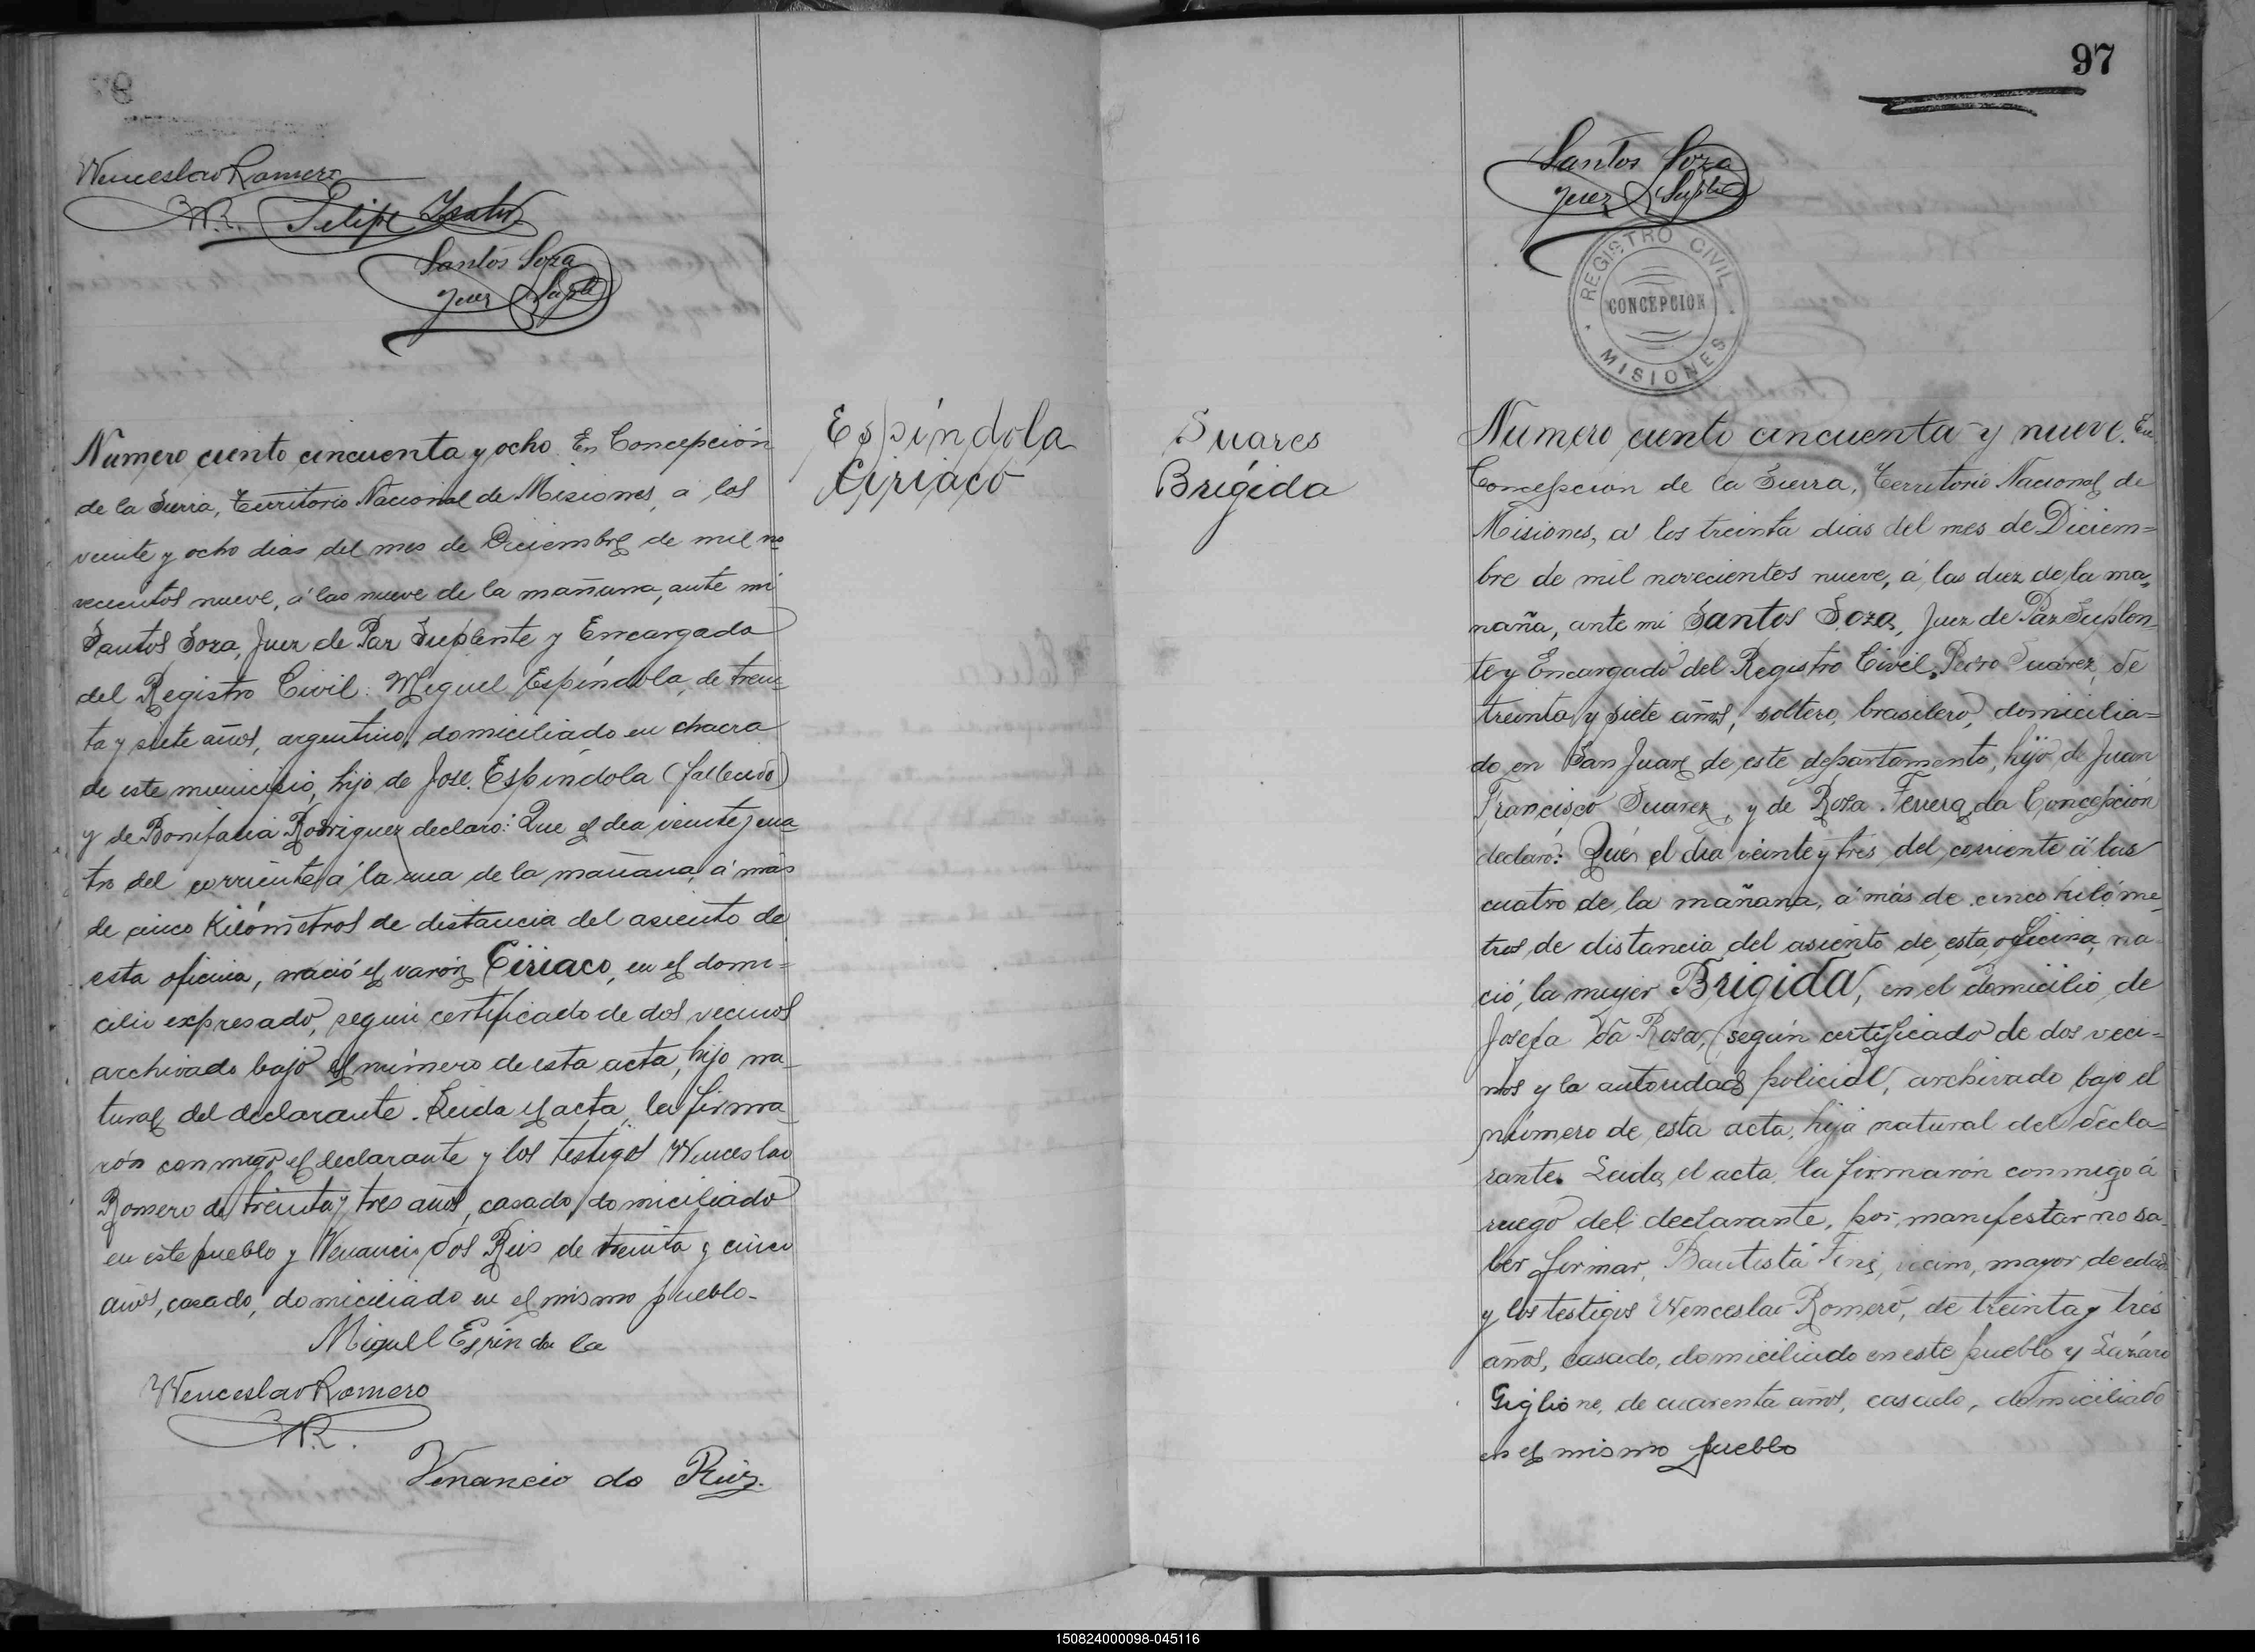 Wenceslao Romero
W.R. Felipe
Santos Soza
Juez Suplte
Numero ciento cincuenta y ocho. En Concepción
de la Sierra, Territorio Nacional de Misiones, a los
veinte y ocho dias del mes de Diciembre de mil no
vecientos nueve, á las nueve de la mañana, ante mi
Santos Soza, Juez de Paz Suplente y Encargado
del Registro Civil: Miguel Espíndola, de trein-
ta y siete años, argentino, domiciliado en chacra
de este municipio, hijo de José Espíndola (fallecido)
y de Bonifacia Rodriguez declaró: Que el dia veinte y cua-
tro del corriente á la una de la mañana, á más
de cinco Kilómetros de distancia del asiento de
esta oficina, nació el varón Ciriaco, en el domi-
cilio expresado, segun certificado de dos vecinos
archivado bajo el número de esta acta, hijo na-
tural del declarante. Leida el acta, la firma-
rón conmigo el declarante y los testigos Wenceslao
Romero de treinta y tres años, casado, domiciliado
en este pueblo y Venancio dos Reis de treinta y cinco
años, casado, domiciliado en el mismo pueblo-
Miguel Espindola
Wenceslao Romero
W.R.
Venancio do Reis.
Espíndola
Ciriaco
97
Santos Soza
Juez Suplte
REGISTRO CIVIL
CONCEPCION
MISIONES
Suares
Brigida
Numero ciento cincuenta y nueve. En
Concepcion de la Sierra, Territorio Nacional de
Misiones, á los treinta dias del mes de Diciem=
bre de mil novecientos nueve, á las diez de la ma-
ñaña, ante mi Santos Soza, Juez de Paz Suplen-
te y Encargado del Registro Civil, Pedro Suárez, de
treinta y siete años, soltero, brasilero, domicilia=
do en San Juan de este departamento, hijo de Juan
Francisco Suarez, y de Rosa Ferrera da Concepción
declaró: Que el dia veinte y tres del corriente á las
cuatro de la mañana, á más de cinco kilóme-
tros de distancia del asiento de esta oficina, na-
ció, la mujer Brigida, en el domicilio de
Josefa da Rosa, según certificado de dos veci-
nos y la autoridad policial, archivado bajo el
número de esta acta, hija natural del decla-
rante. Leida el acta, la firmarón conmigo á
ruego del declarante, por manifestar no sa-
ber firmar, Bautista vecino, mayor de edad
y los testigos Wenceslao Romero, de treinta y tres
años, casado, domiciliado en este pueblo y Lázaro
Giglione, de cuarenta años, casado, domiciliado
en el mismo pueblo
150824000098-045116